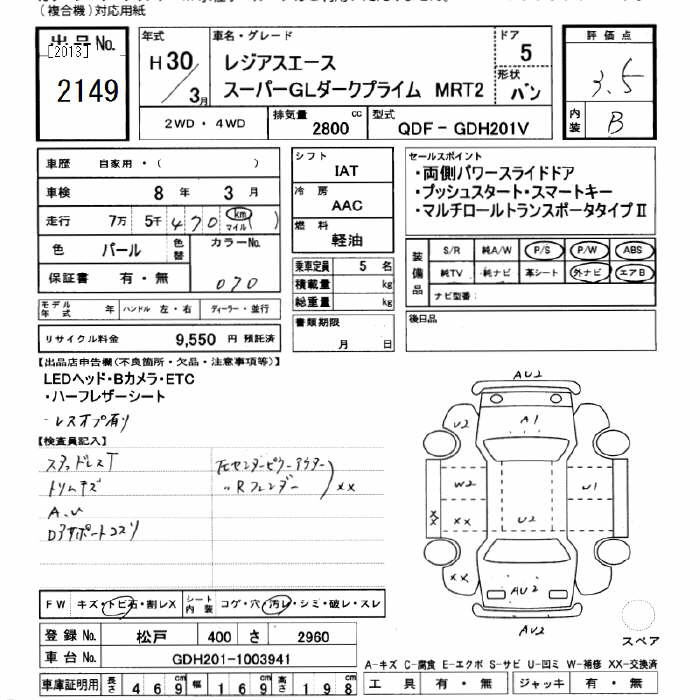 (複合機)対応用紙
出品No.
[2013]
2149
年式
H30
3月
車名・グレード
レジアスエース
スーパーGLダークプライム MRT2
ドア
5
形状
バン
評価点
3.5
内装
B
2WD・4WD
排気量 2800 cc
型式 QDF-GDH201V
車歴 自家用・( )
車検 8年 3月
走行 7万 5千 470 km マイル ( )
色 パール 色替 カラーNo.
070
保証書 有・無
シフト
IAT
冷房
AAC
燃料
軽油
乗車定員 5名
積載量 kg
総重量 kg
書類期限
月 日
セールスポイント
・両側パワースライドドア
・プッシュスタート・スマートキー
・マルチロールトランスポータタイプⅡ
装備品
S/R 純A/W P/S P/W ABS
純TV 純ナビ 革シート 外ナビ エアB
ナビ型番:
後日品
モデル年式 年 ハンドル 左・右 ディーラー・並行
リサイクル料金 9,550 円 預託済
【出品店申告欄(不良箇所・欠品・注意事項等)】
LEDヘッド・Bカメラ・ETC
・ハーフレザーシート
・レスオプ有り
【検査員記入】
スタッドレスT
トリムキズ
A.U
D3サポートコスリ
左センターピラーアウター
〃Rフェンダー
××
FW キズ・トビ石・割レX シート内装 コゲ・穴・汚レ・シミ・破レ・スレ
登録No. 松戸 400 さ 2960
車台No. GDH201-1003941
車庫証明用 長さ 469cm 幅 169cm 高さ 198cm
AU2
A1
U2
W2
U1
××
××
U2
××
AU2
AU2
スペア
A-キズ C-腐食 E-エクボ S-サビ U-凹ミ W-補修 XX-交換済
工具 有・無 ジャッキ 有・無